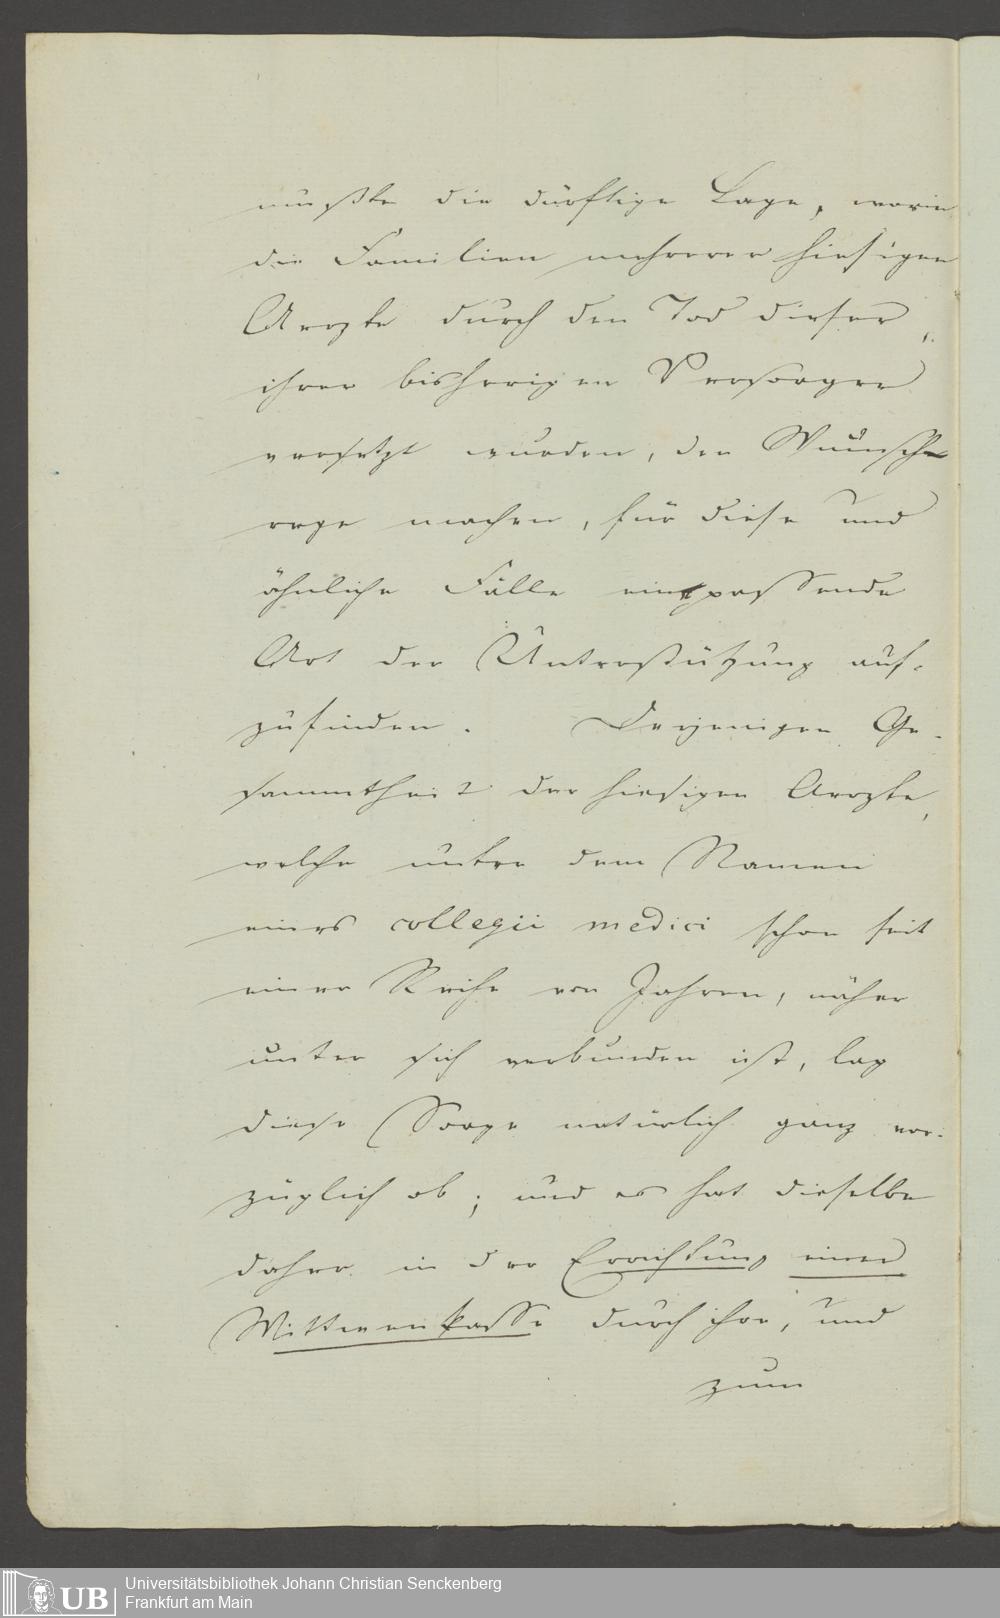 mußte die dürftige Lage, worin
die Familien mehrerer hiesigen
Aerzte durch den Tod dieser,
ihrer bisherigen Versorger
versetzt wurden, den Wunsch
rege machen, für diese und
ähnliche Fälle eine passende
Art der Unterstützung auf-
zufinden. Derjenigen Ge-
sammtheit der hiesigen Aerzte,
welche unter dem Namen
eines collegii medici schon seit
einer Reihe von Jahren, näher
unter sich verbunden ist, lag
diese Sorge natürlich ganz vor-
züglich ob; und es hat dieselbe
daher in der Errichtung einer
Wittwenkasse durch ihre, und
zum
UB
Universitätsbibliothek Johann Christian Senckenberg
Frankfurt am Main